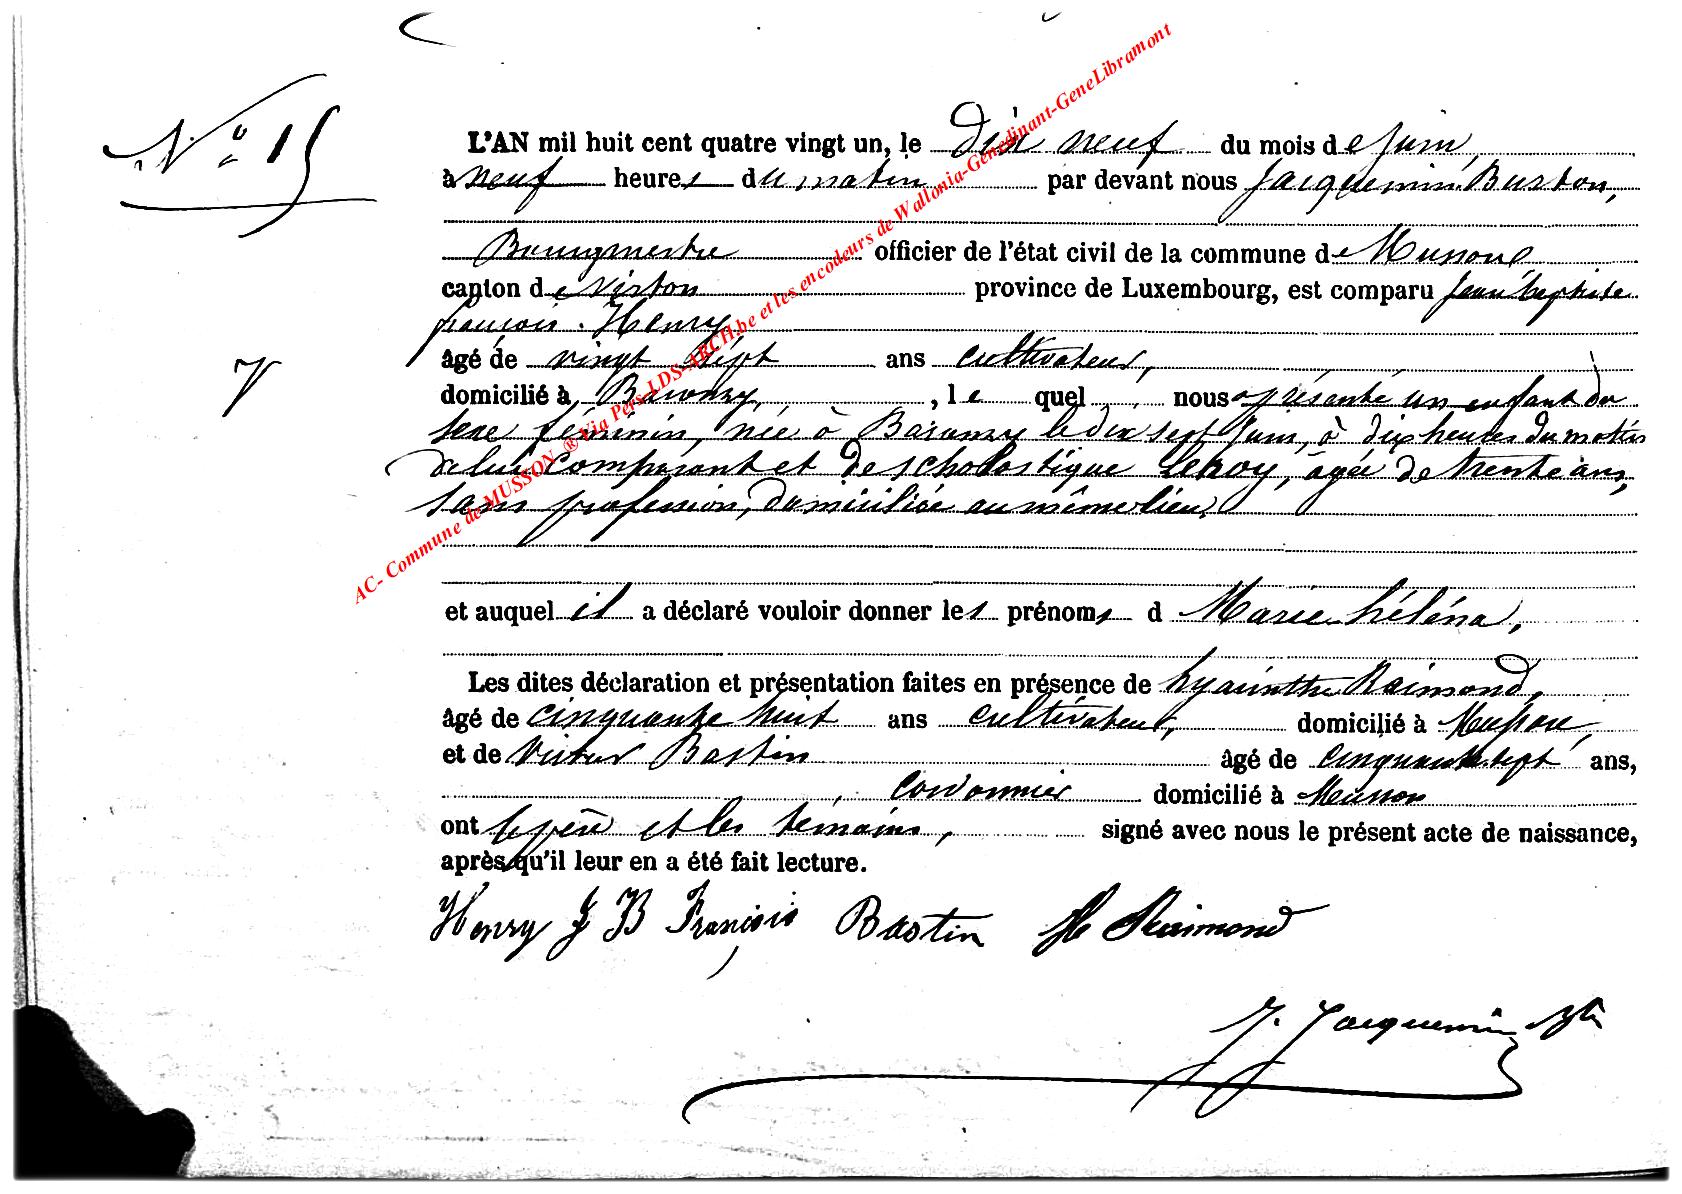 N° 15
L'AN mil huit cent quatre vingt un, le dix neuf du mois de juin,
à neuf heures du matin par devant nous Jacquemin Buston,
Bourgmestre officier de l'état civil de la commune de Musson
canton de Virton province de Luxembourg, est comparu Jean baptiste
françois Henry
âgé de vingt sept ans cultivateur,
domicilié à Baranzy, le quel nous a présenté un enfant du
sexe féminin, née à Baranzy le dix sept juin, à dix heures du matin
de lui comparant et de scholastique Leroy, âgée de trente ans,
sans profession, domiciliée au même lieu,
et auquel il a déclaré vouloir donner les prénoms d Marie héléna,
Les dites déclaration et présentation faites en présence de hyacinthe Raimond,
âgé de cinquante huit ans cultivateur, domicilié à Musson,
et de Victor Bastin âgé de cinquante sept ans,
cordonnier domicilié à Musson
ont le père et les témoins, signé avec nous le présent acte de naissance,
après qu'il leur en a été fait lecture.
Henry J B François Bastin H Raimond
J. Jacquemin Bton
AC- Commune de MUSSON ® Via Pers-LDS-ARCH.be et les encodeurs de Wallonia-Genedinant-GeneLibramont